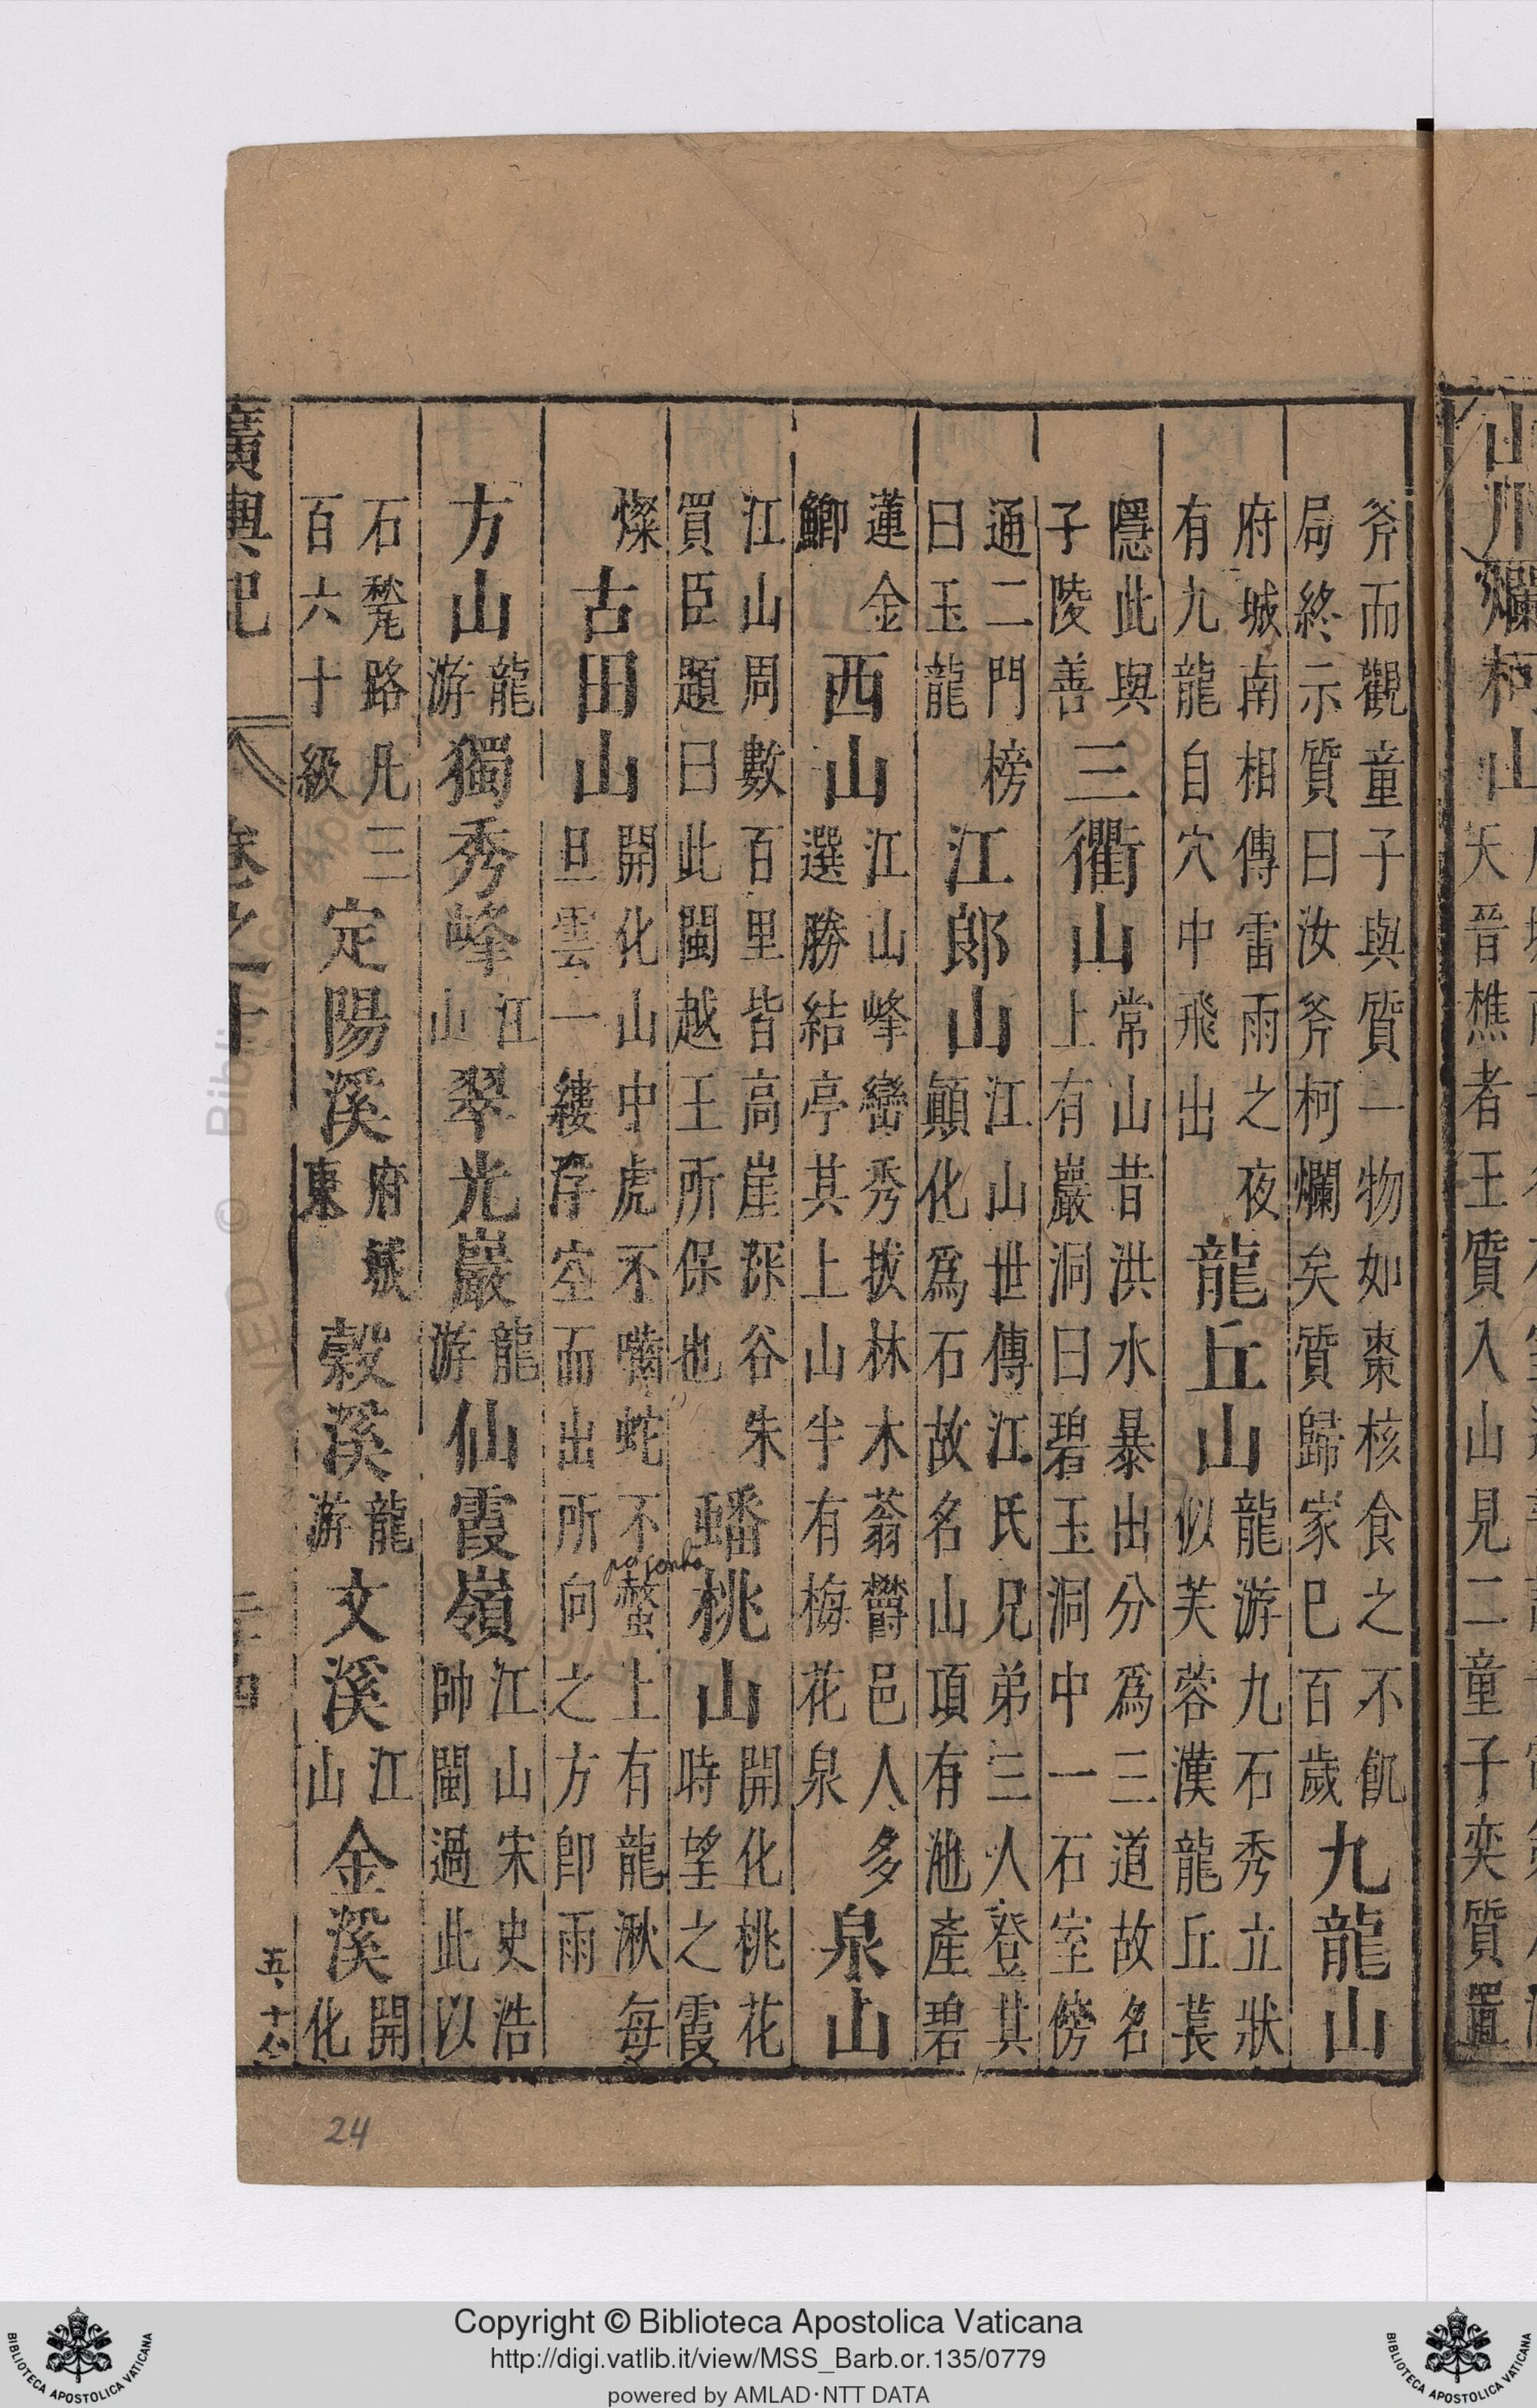 山川爛柯山
天晉樵者王質入山見二童子奕質置
斧而觀童子與質一物如棗核食之不飢
局終示質曰汝斧柯爛矣質歸家已百歲
九龍山
府城南相傳雷雨之夜
有九龍自穴中飛出
龍丘山
龍游九石秀立狀
似芙蓉漢龍丘萇
隱此與
子陵善
三衢山
常山昔洪水暴出分爲三道故名
上有巖洞曰碧玉洞中一石室傍
通二門榜
曰玉龍
江郎山
江山世傳江氏兄弟三人登其
顛化爲石故名山頂有池產碧
蓮金
鯽
西山
江山峰巒秀拔林木蓊欝邑人多
選勝結亭其上山半有梅花泉
泉山
江山周數百里皆高崖深谷朱
買臣題曰此閩越王所保也
蟠桃山
開化桃花
時望之霞
燦
古田山
開化山中虎不囓蛇不螫上有龍湫每
旦雲一縷浮空而出所向之方卽雨
方山
龍
游
獨秀峰
江
山
翠光巖
龍
游
仙霞嶺
江山宋史浩
帥閩過此以
石甃路凡三
百六十級
定陽溪
府城
東
榖溪
龍
游
文溪
江
山
金溪
開
化
廣輿記
卷之十
二十四
24
Copyright © Biblioteca Apostolica Vaticana
http://digi.vatlib.it/view/MSS_Barb.or.135/0779
powered by AMLAD·NTT DATA
BIBLIOTECA APOSTOLICA VATICANA
BIBLIOTECA APOSTOLICA VATICANA